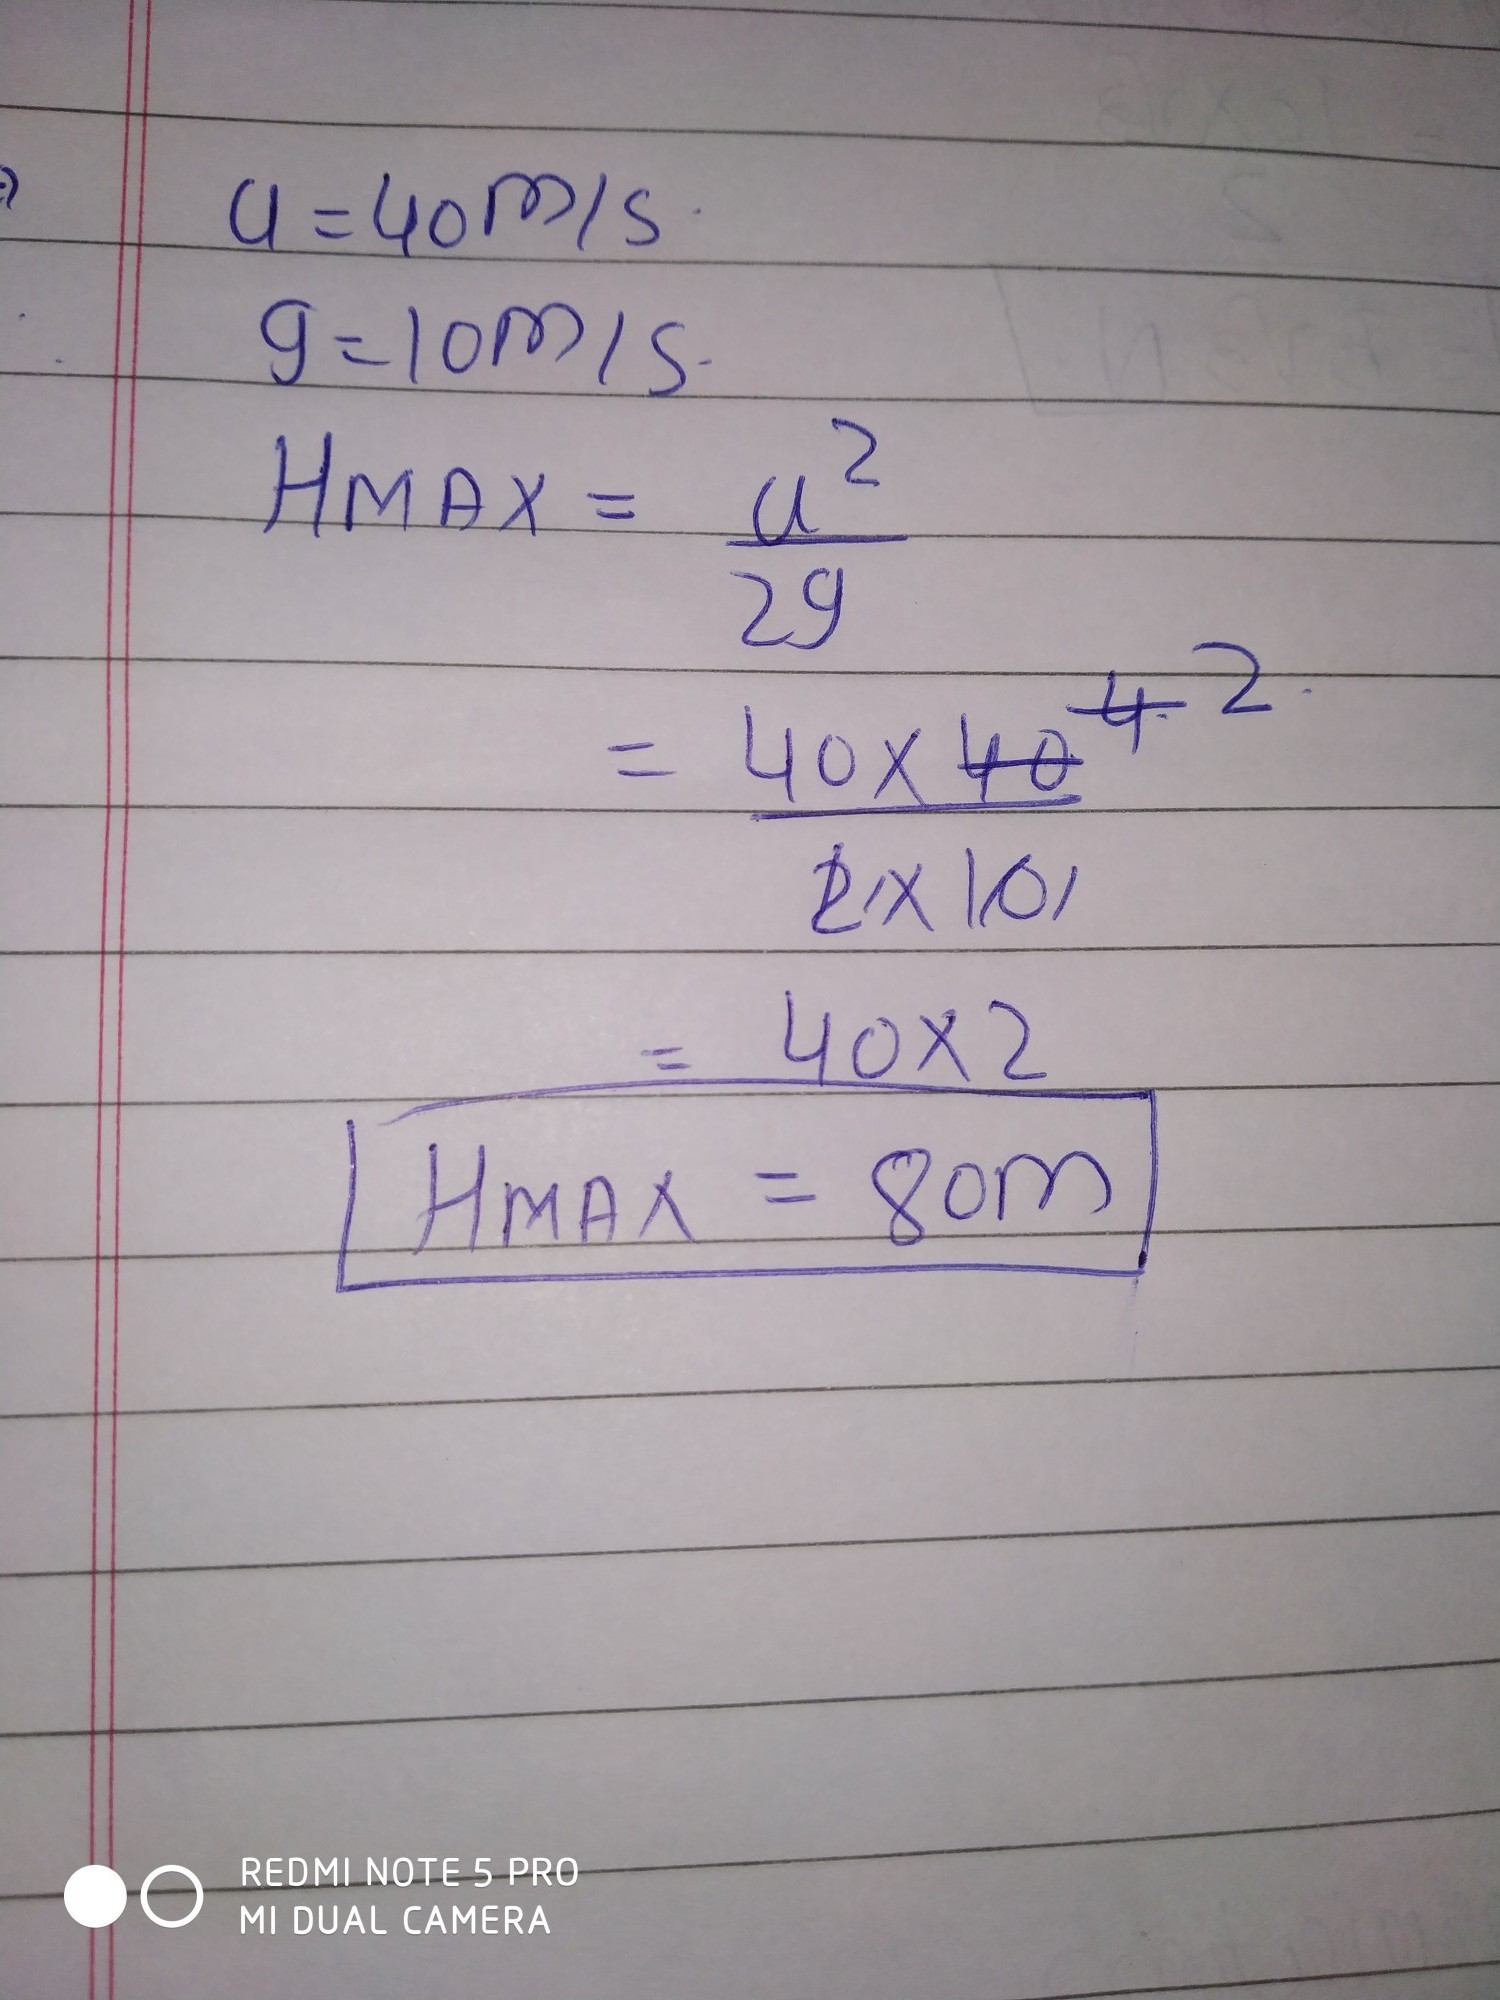 u = 40 m/s.
g = 10 m/s.
HMAX = u²
2g
= 40 x 40 4 2.
2 x 10
= 40 x 2
HMAX = 80m
REDMI NOTE 5 PRO
MI DUAL CAMERA